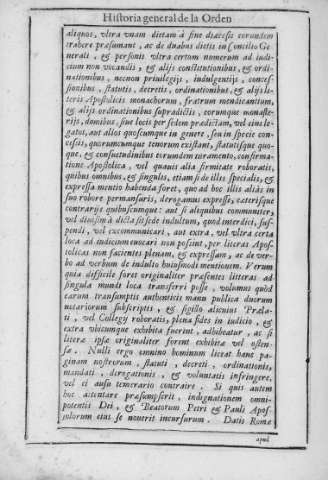 Historia general de la Orden
aliquos, vltra vnam dietam à sine diœcesis eorundem
trahere præsumant, ac de duabus dietis in Concilio Ge
nerali, & personis vltra certum numerum ad iudi-
cium non vocandis, & alijs constitutionibus, & ordi
nationibus, necnon priuilegijs, indulgentijs, conces-
sionibus, statutis, decretis, ordinationibus, & alijs li-
teris Apostolicis monachorum, fratrum mendicantium,
& alijs ordinationibus supradictis, eorumque monaste-
rijs, domibus, siue locis per sedem prædictam, vel eius le-
gatos, aut alios quoscumque in genere, seu in specie con-
cessis, quorumcumque tenorum existant, statutisque quo-
que, & consuetudinibus eorundem iuramento, confirma-
tione Apostolica, vel quauis alia firmitate roboratis,
quibus omnibus, & singulis, etiam si de illis specialis, &
expressa mentio habenda foret, quo ad hoc illis aliàs in
suo robore permansuris, derogamus expressè, cæterisque
contrarijs quibuscumque: aut si aliquibus communiter,
vel diuisim à dicta sit sede indultum, quod interdici, sus-
pendi, vel excommunicari, aut extra, vel vltra certa
loca ad iudicium euocari non possint, per literas Apos-
tolicas non facientes plenam, & expressam, ac de ver-
bo ad verbum de indulto huiusmodi mentionem. Verum
quia difficile foret originaliter præsentes literas ad
singula mundi loca transferri posse, volumus quòd
earum transumptis authenticis manu publica duorum
notariorum subscriptis, & sigillo alicuius Præla-
ti, vel Collegij roboratis, plena fides in iudicio, &
extra vbicumque exhibita fuerint, adhibeatur, ac si
literæ ipsæ originaliter forent exhibitæ vel osten-
sæ. Nulli ergo omnino hominum liceat hanc pa-
ginam nostrorum, statuti, decreti, ordinationis,
mandati, derogationis, & voluntatis infringere,
vel ei ausu temerario contraire. Si quis autem
hoc attentare præsumpserit, indignationem omni-
potentis Dei, & Beatorum Petri & Pauli Apos-
tolorum eius se nouerit incursurum. Datis Romæ
apud